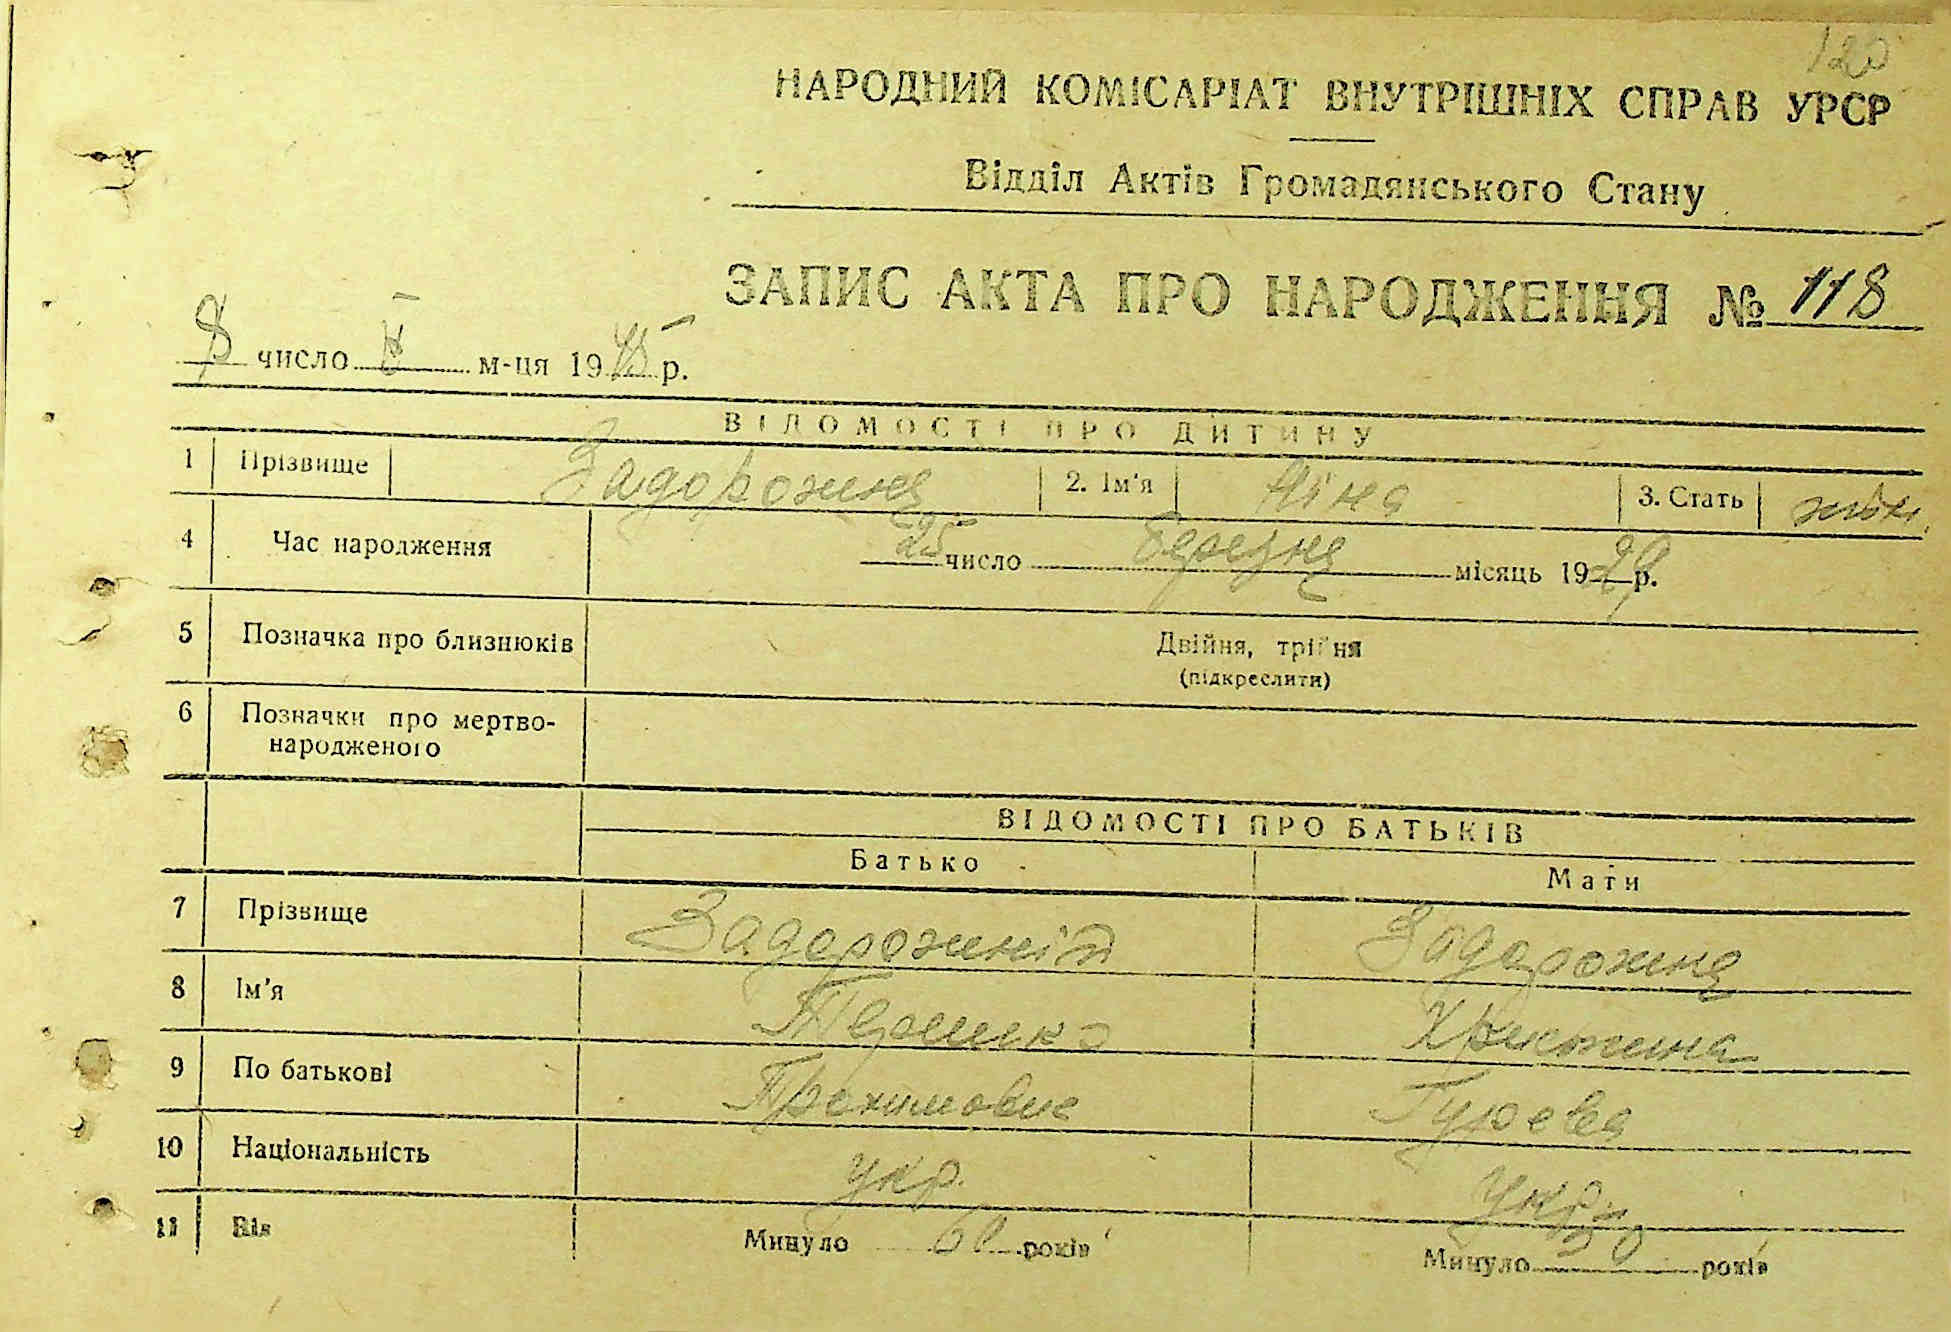 120
НАРОДНИЙ КОМІСАРІАТ ВНУТРІШНІХ СПРАВ УРСР
Відділ Актів Громадянського Стану
ЗАПИС АКТА ПРО НАРОДЖЕННЯ № 118
8 число ІІ м-ця 1945 р.
ВІДОМОСТІ ПРО ДИТИНУ
1 Прізвище Задорожня 2. Ім'я Ніна 3. Стать жін.
4 Час народження 25 число березня місяць 1929 р.
5 Позначка про близнюків Двійня, трійня
(підкреслити)
6 Позначки про мертво-
народженого
ВІДОМОСТІ ПРО БАТЬКІВ
Батько Мати
7 Прізвище Задорожній Задорожня
8 Ім'я Терешко Христина
9 По батькові Трохимович Гурєва
10 Національність укр. укр.
11 Вік Минуло 60 років Минуло 50 років